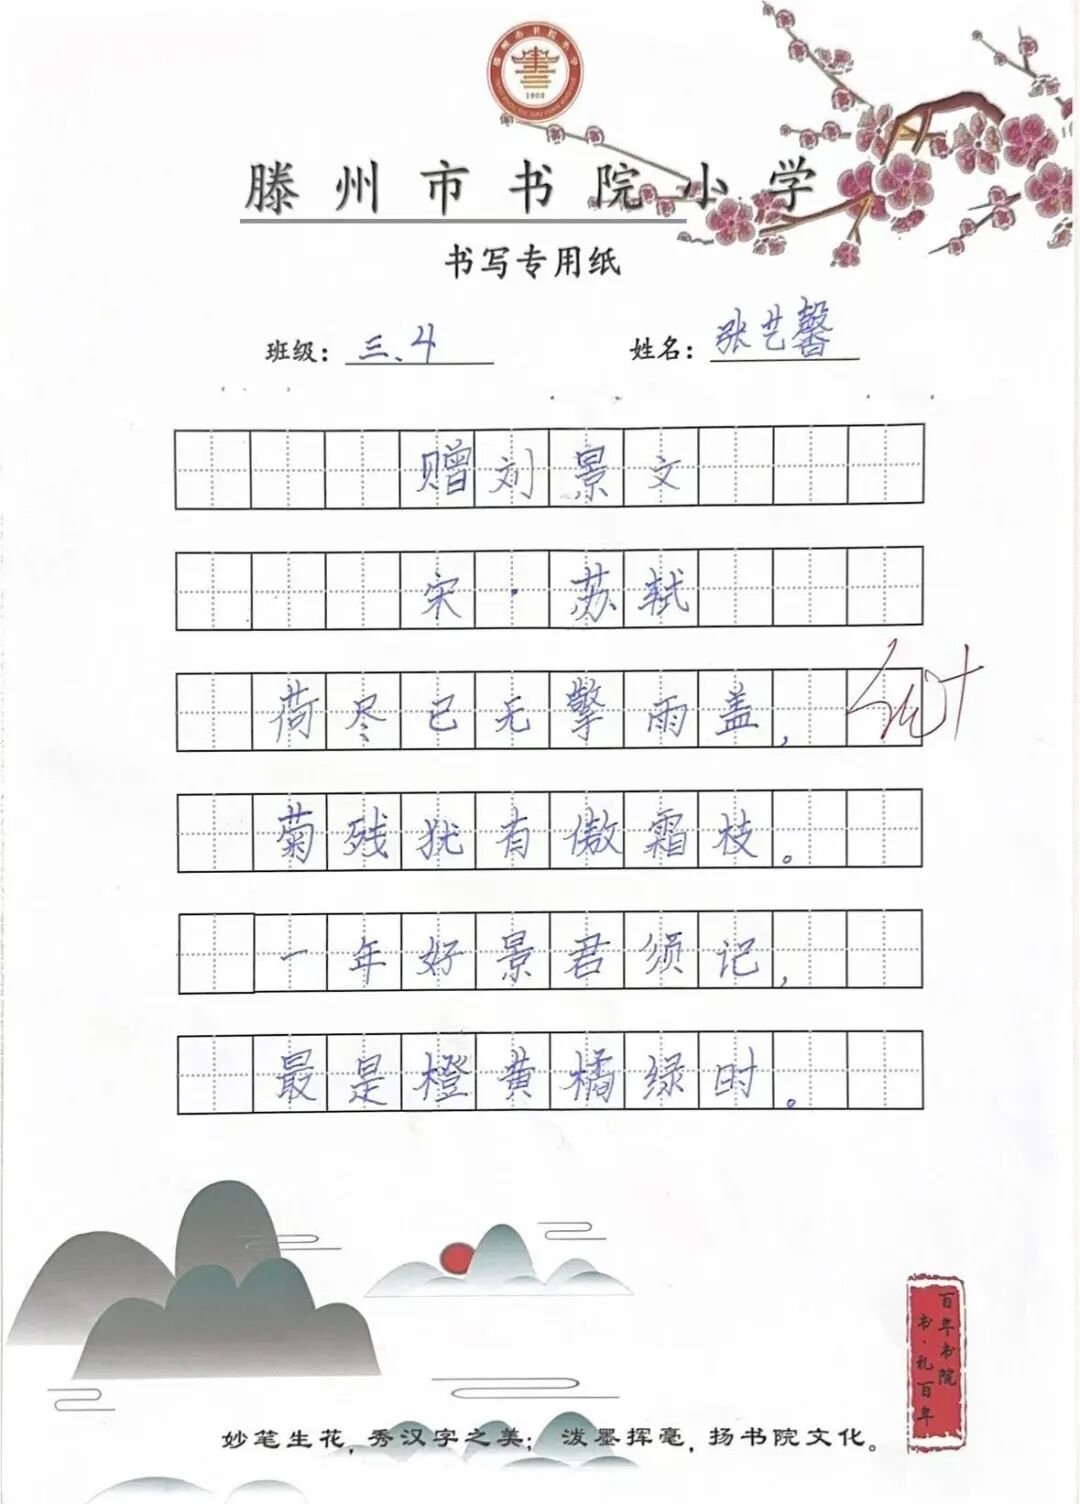 滕州市书院小学
1903
滕州市书院小学
书写专用纸
班级：三、4 姓名：张艺馨
赠刘景文
宋·苏轼
荷尽已无擎雨盖，
菊残犹有傲霜枝。
一年好景君须记，
最是橙黄橘绿时。
百年书院
书·礼百年
妙笔生花，秀汉字之美；泼墨挥毫，扬书院文化。